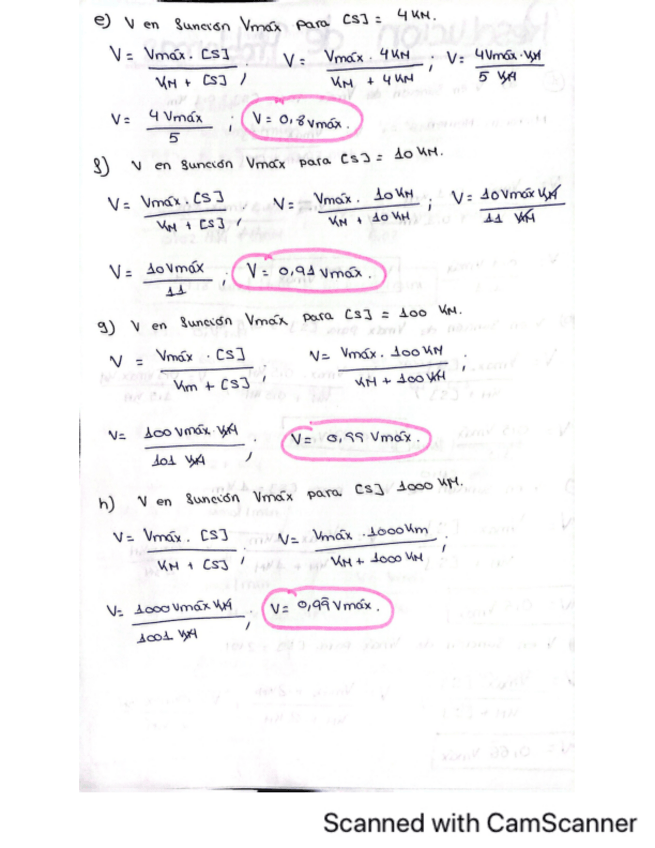 e) V en función Vmáx para [S] = 4 KM.
V = Vmáx . [S] / KM + [S] ; V = Vmáx . 4KM / KM + 4KM ; V = 4Vmáx . KM / 5 KM
V = 4 Vmáx / 5 ; V = 0,8 Vmáx.
f) V en función Vmáx para [S] = 10 KM.
V = Vmáx . [S] / KM + [S] ; V = Vmáx . 10 KM / KM + 10 KM ; V = 10 Vmáx KM / 11 KM
V = 10 Vmáx / 11 ; V = 0,91 Vmáx.
g) V en función Vmáx para [S] = 100 KM.
V = Vmáx . [S] / Km + [S] ; V = Vmáx . 100 KM / KM + 100 KM ;
V = 100 Vmáx . KM / 101 KM ; V = 0,99 Vmáx.
h) V en función Vmáx para [S] 1000 KM.
V = Vmáx . [S] / KM + [S] ; V = Vmáx . 1000 Km / KM + 1000 KM ;
V = 1000 Vmáx KM / 1001 KM ; V = 0,99 Vmáx.
Scanned with CamScanner